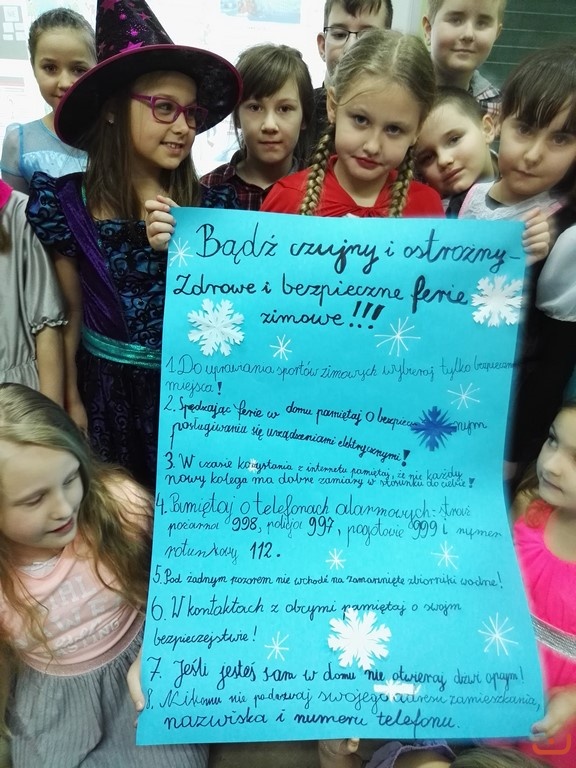 Bądź czujny i ostrożny-
Zdrowe i bezpieczne ferie
zimowe!!!
1. Do uprawiania sportów zimowych wybieraj tylko bezpieczne
miejsca!
2. Spędzając ferie w domu pamiętaj o bezpiecznym
posługiwaniu się urządzeniami elektrycznymi!
3. W czasie korzystania z internetu pamiętaj, że nie każdy
nowy kolega ma dobre zamiary w stosunku do ciebie!
4. Pamiętaj o telefonach alarmowych: straż
pożarna 998, policja 997, pogotowie 999 i numer
ratunkowy 112.
5. Pod żadnym pozorem nie wchodź na zamarznięte zbiorniki wodne!
6. W kontaktach z obcymi pamiętaj o swoim
bezpieczejstwie!
7. Jeśli jesteś sam w domu nie otwieraj drzwi obcym!
8. Nikomu nie podawaj swojego adresu zamieszkania,
nazwiska i numeru telefonu.